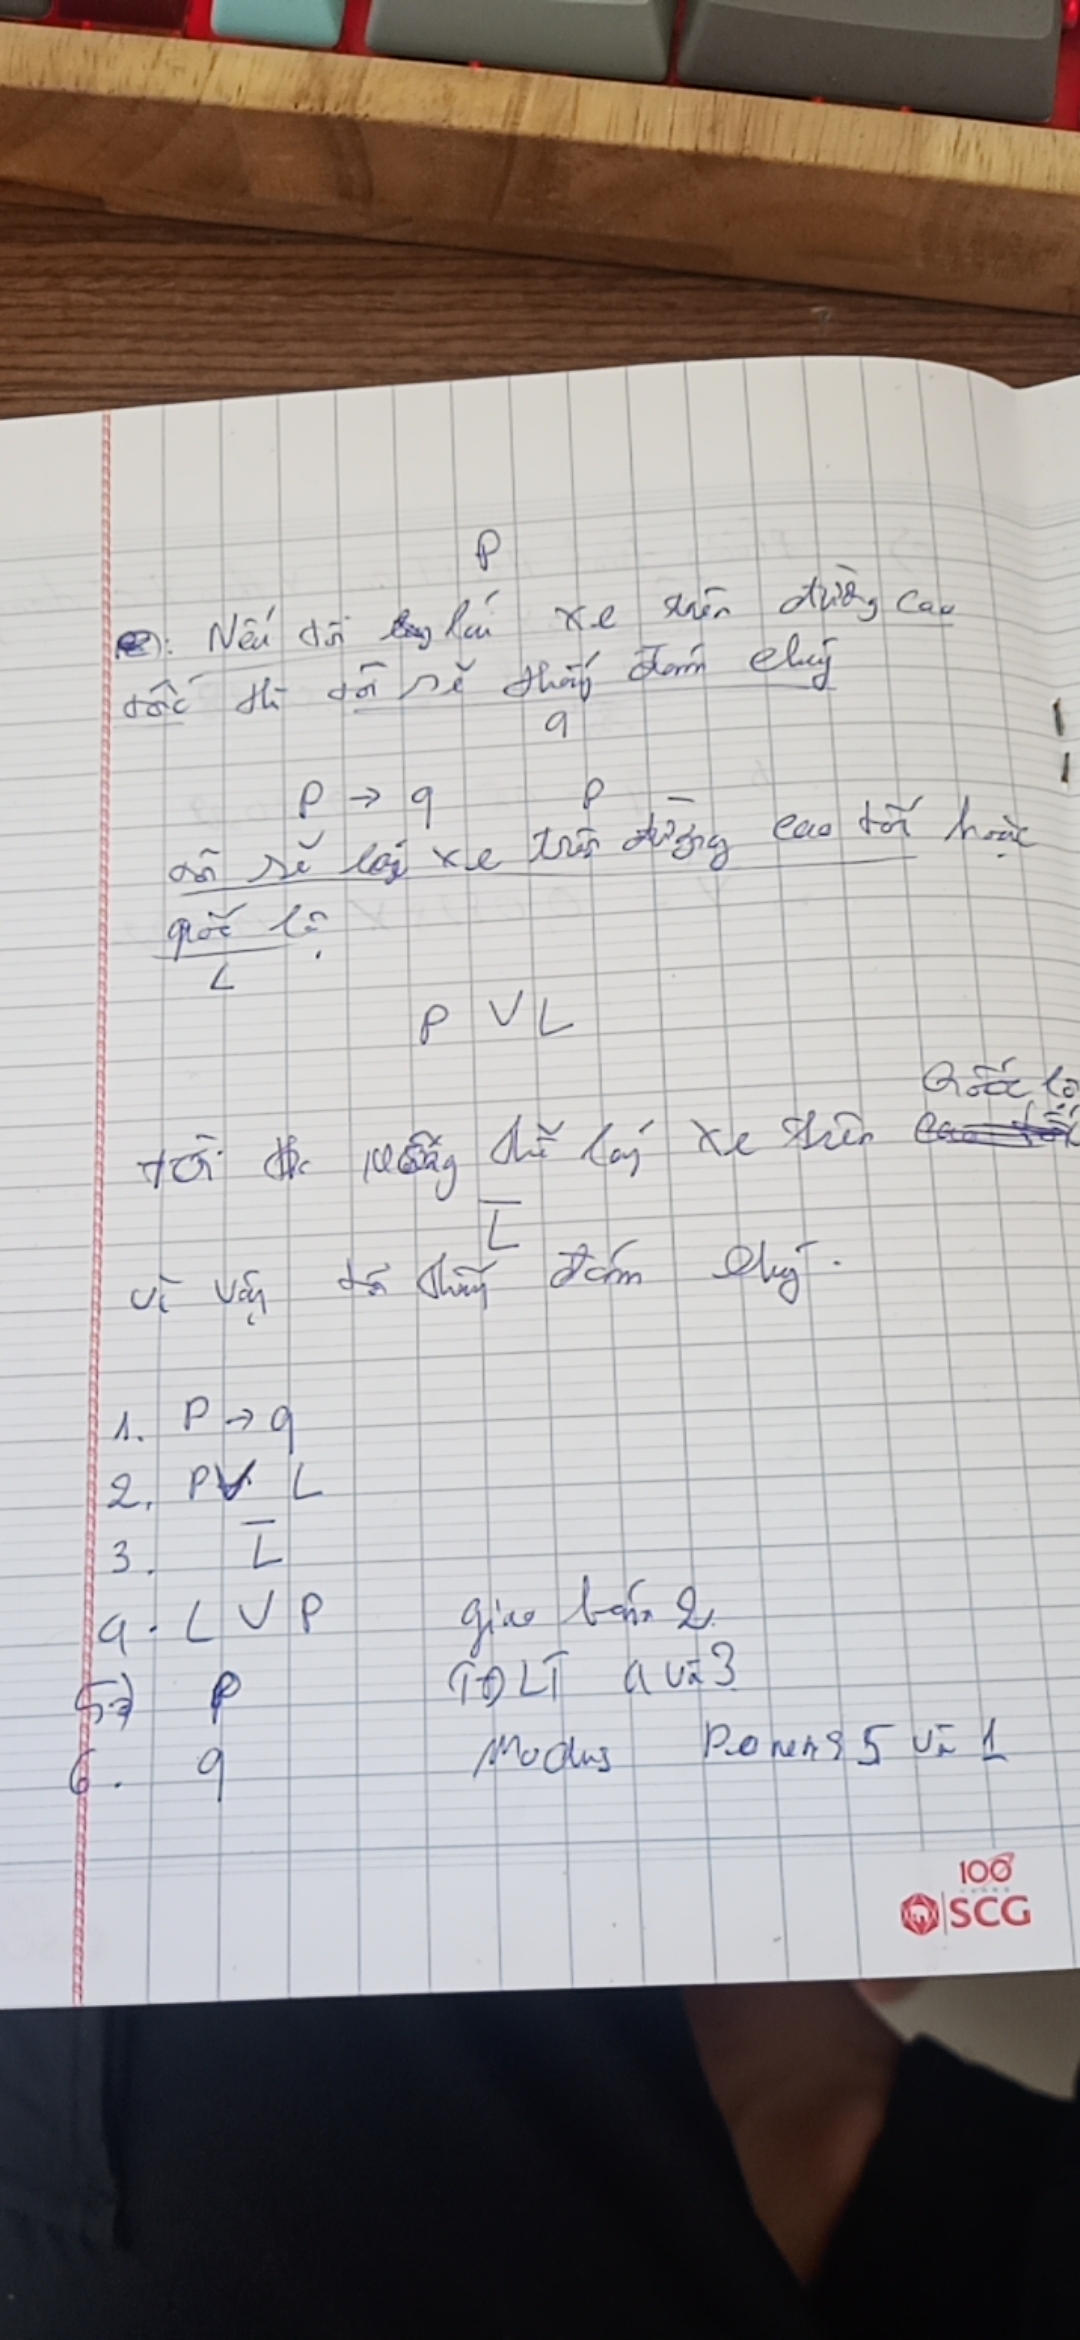 P
Nếu tôi lái xe trên đường cao
tốc thì tôi sẽ thấy đám cháy
q
P → q P
tôi sẽ lái xe trên đường cao tốc hoặc
quốc lộ
L
P V L
Quốc lộ
tôi không thể lái xe trên
L̅
vì vậy tôi thấy đám cháy.
1. P → q
2. P V L
3. L̅
4. L V P giao hoán 2.
5. P TĐLT 4 và 3
6. q Modus Ponens 5 và 1
100
SCG